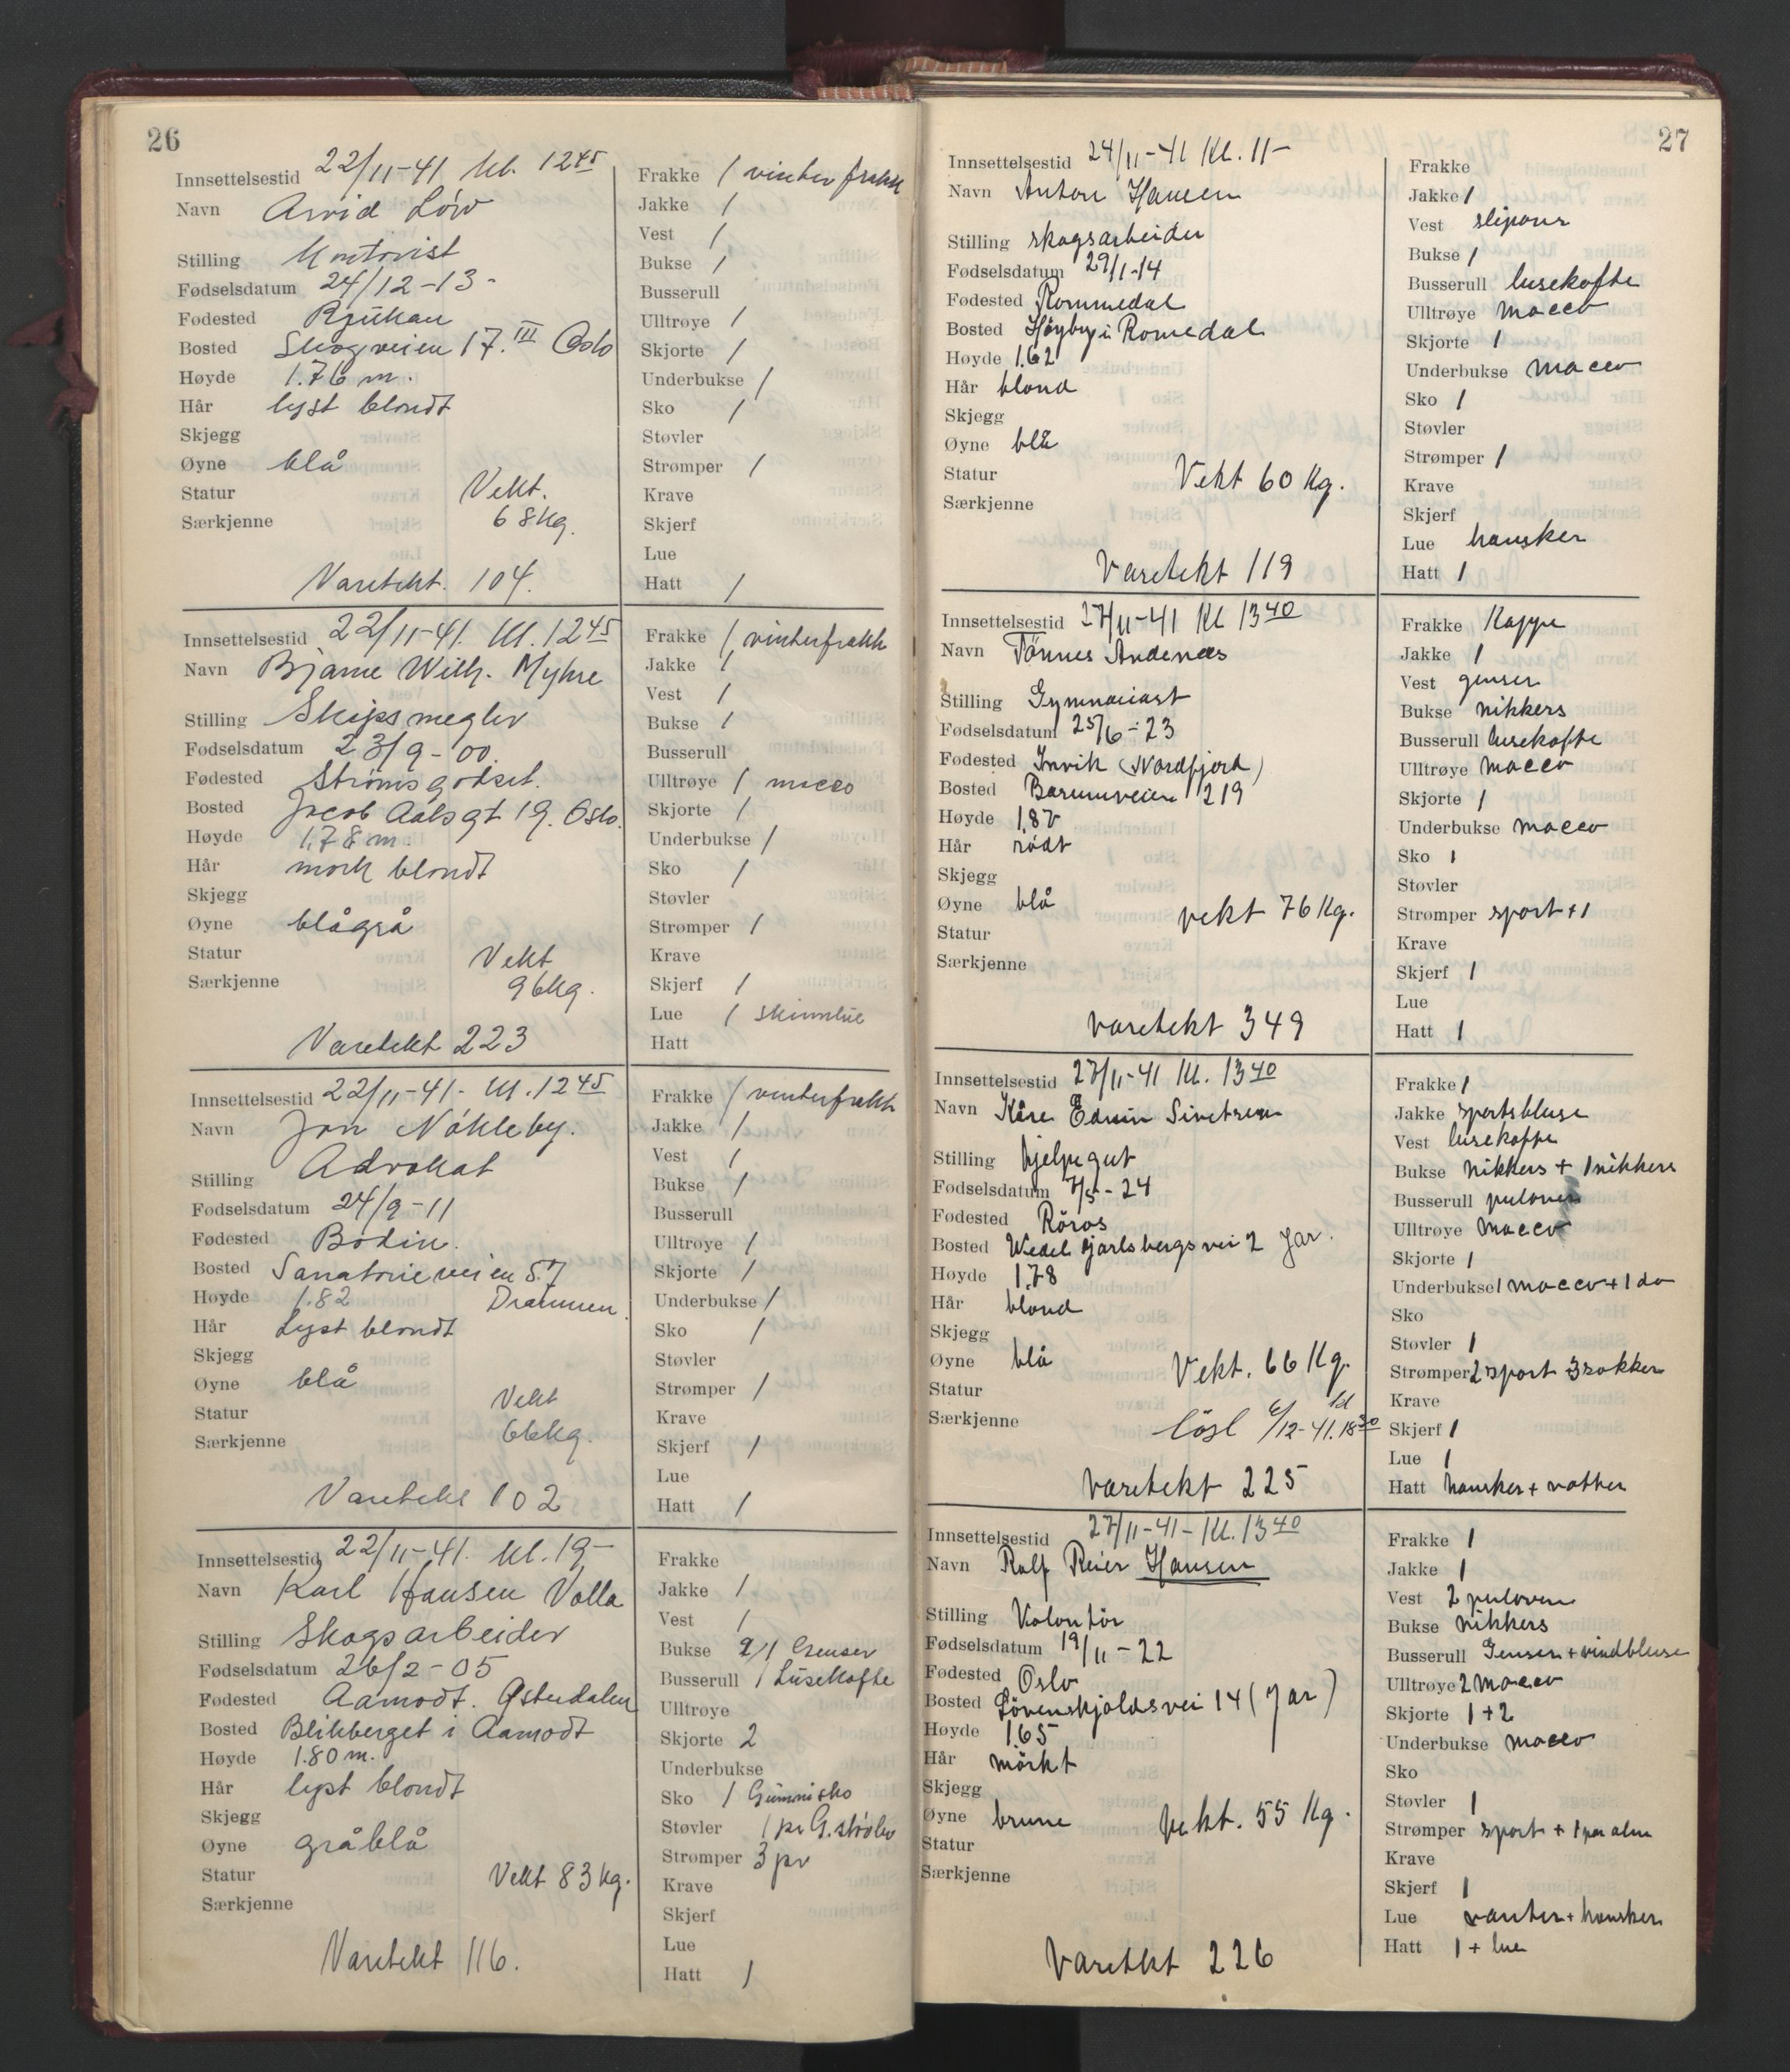 26
Innsettelsestid 22/11-41 kl. 12 45
Navn Arvid Löw
Stilling Kontorist
Fødselsdatum 24/12-13-
Fødested Rjukan
Bosted Skogveien 17. III Oslo
Høyde 1.76 m.
Hår lyst blondt
Skjegg
Øyne blå
Statur Vekt.
Særkjenne 68kg.
Varetekt. 104.
Frakke / vinterfrakk
Jakke /
Vest /
Bukse /
Busserull
Ulltrøye /
Skjorte /
Underbukse /
Sko /
Støvler
Strømper /
Krave
Skjerf
Lue
Hatt /
Innsettelsestid 22/11-41. kl. 12 45
Navn Bjarne Wilh. Myhre
Stilling Skipsmegler
Fødselsdatum 23/9-00.
Fødested Strömsgodset.
Bosted Jacob Aalsgt 19. Oslo.
Høyde 1.78 m.
Hår mørk blondt
Skjegg
Øyne blågrå
Statur Vekt
Særkjenne 96kg.
Varetekt 223
Frakke / vinterfrakk
Jakke /
Vest /
Bukse /
Busserull
Ulltrøye / macco
Skjorte /
Underbukse /
Sko /
Støvler
Strømper /
Krave
Skjerf /
Lue / skinnlue
Hatt
Innsettelsestid 22/11-41- kl. 12 45
Navn Jon Nökleby.
Stilling Advokat
Fødselsdatum 24/9-11
Fødested Bodin.
Bosted Sanatorieveien 57
Høyde 1.82 Drammen
Hår Lyst blondt
Skjegg
Øyne blå
Statur Vekt
Særkjenne 66kg.
Varetekt 102
Frakke / vinterfrakk
Jakke /
Vest /
Bukse /
Busserull
Ulltrøye /
Skjorte /
Underbukse /
Sko /
Støvler
Strømper /
Krave
Skjerf /
Lue
Hatt /
Innsettelsestid 22/11-41. kl. 19-
Navn Karl Hansen Volla
Stilling Skogsarbeider
Fødselsdatum 26/2-05
Fødested Aamodt. Østerdalen
Bosted Blikberget i Aamodt
Høyde 1.80 m.
Hår lyst blondt
Skjegg
Øyne gråblå
Statur Vekt 83 kg.
Særkjenne
Varetekt 116.
Frakke
Jakke /
Vest /
Bukse 2/1 Genser
Busserull / Lusekofte
Ulltrøye
Skjorte 2
Underbukse
Sko / Gummisko
Støvler 1 pr G.støvler
Strømper 3 pr
Krave
Skjerf
Lue
Hatt /
27
Innsettelsestid 24/11-41 Kl. 11-
Navn Anton Hansen
Stilling skogsarbeider
Fødselsdatum 29/1-14
Fødested Rommedal
Bosted Høyby i Romedal
Høyde 1.62
Hår blond
Skjegg
Øyne blå
Statur Vekt 60 Kg.
Særkjenne
Varetekt 119
Frakke
Jakke 1
Vest slipover
Bukse 1
Busserull lusekofte
Ulltrøye macco
Skjorte 1
Underbukse macco
Sko 1
Støvler
Strømper 1
Krave
Skjerf
Lue hansker
Hatt 1
Innsettelsestid 27/11-41 Kl 13 40
Navn Tönnes Andenæs
Stilling Gymnasiast
Fødselsdatum 25/6-23
Fødested Invik (Nordfjord)
Bosted Bærumveien 219
Høyde 1,82
Hår rødt
Skjegg
Øyne blå vekt 76 Kg.
Statur
Særkjenne
varetekt 349
Frakke Kappe
Jakke 1
Vest genser
Bukse nikkers
Busserull lusekofte
Ulltrøye macco
Skjorte 1
Underbukse macco
Sko 1
Støvler
Strømper sport +1
Krave
Skjerf 1
Lue
Hatt 1
Innsettelsestid 27/11-41 Kl. 13 40
Navn Kåre Edwin Sivertsen
Stilling hjelpegut
Fødselsdatum 7/5-24
Fødested Röros
Bosted Wedel Jarlsbergs vei 2 Jar.
Høyde 1.78
Hår blond
Skjegg
Øyne blå Vekt. 66 Kg.
Statur
Særkjenne løsl 6/12-41. kl 18 30
Varetekt 225
Frakke 1
Jakke sportsbluse
Vest lusekofte
Bukse nikkers + 1 nikkers
Busserull pulover
Ulltrøye macco
Skjorte 1
Underbukse 1 macco + 1 do
Sko
Støvler 1
Strømper 2 sport 3 sokker
Krave
Skjerf 1
Lue 1
Hatt hansker + votter
Innsettelsestid 27/11-41- Kl. 13 40
Navn Rolf Reier Hansen
Stilling Volontør
Fødselsdatum 19/11-22
Fødested Oslo
Bosted Lövenskjolds vei 14 (Jar)
Høyde 1.65
Hår mörkt
Skjegg
Øyne brune vekt. 55 Kg.
Statur
Særkjenne
Varetekt 226
Frakke 1
Jakke 1
Vest 2 pulovere
Bukse nikkers
Busserull Genser + vindbluse
Ulltrøye 2 macco
Skjorte 1+2
Underbukse macco
Sko
Støvler 1
Strømper sport + 1 par alm
Krave
Skjerf 1
Lue vanter + hansker
Hatt 1 + lue